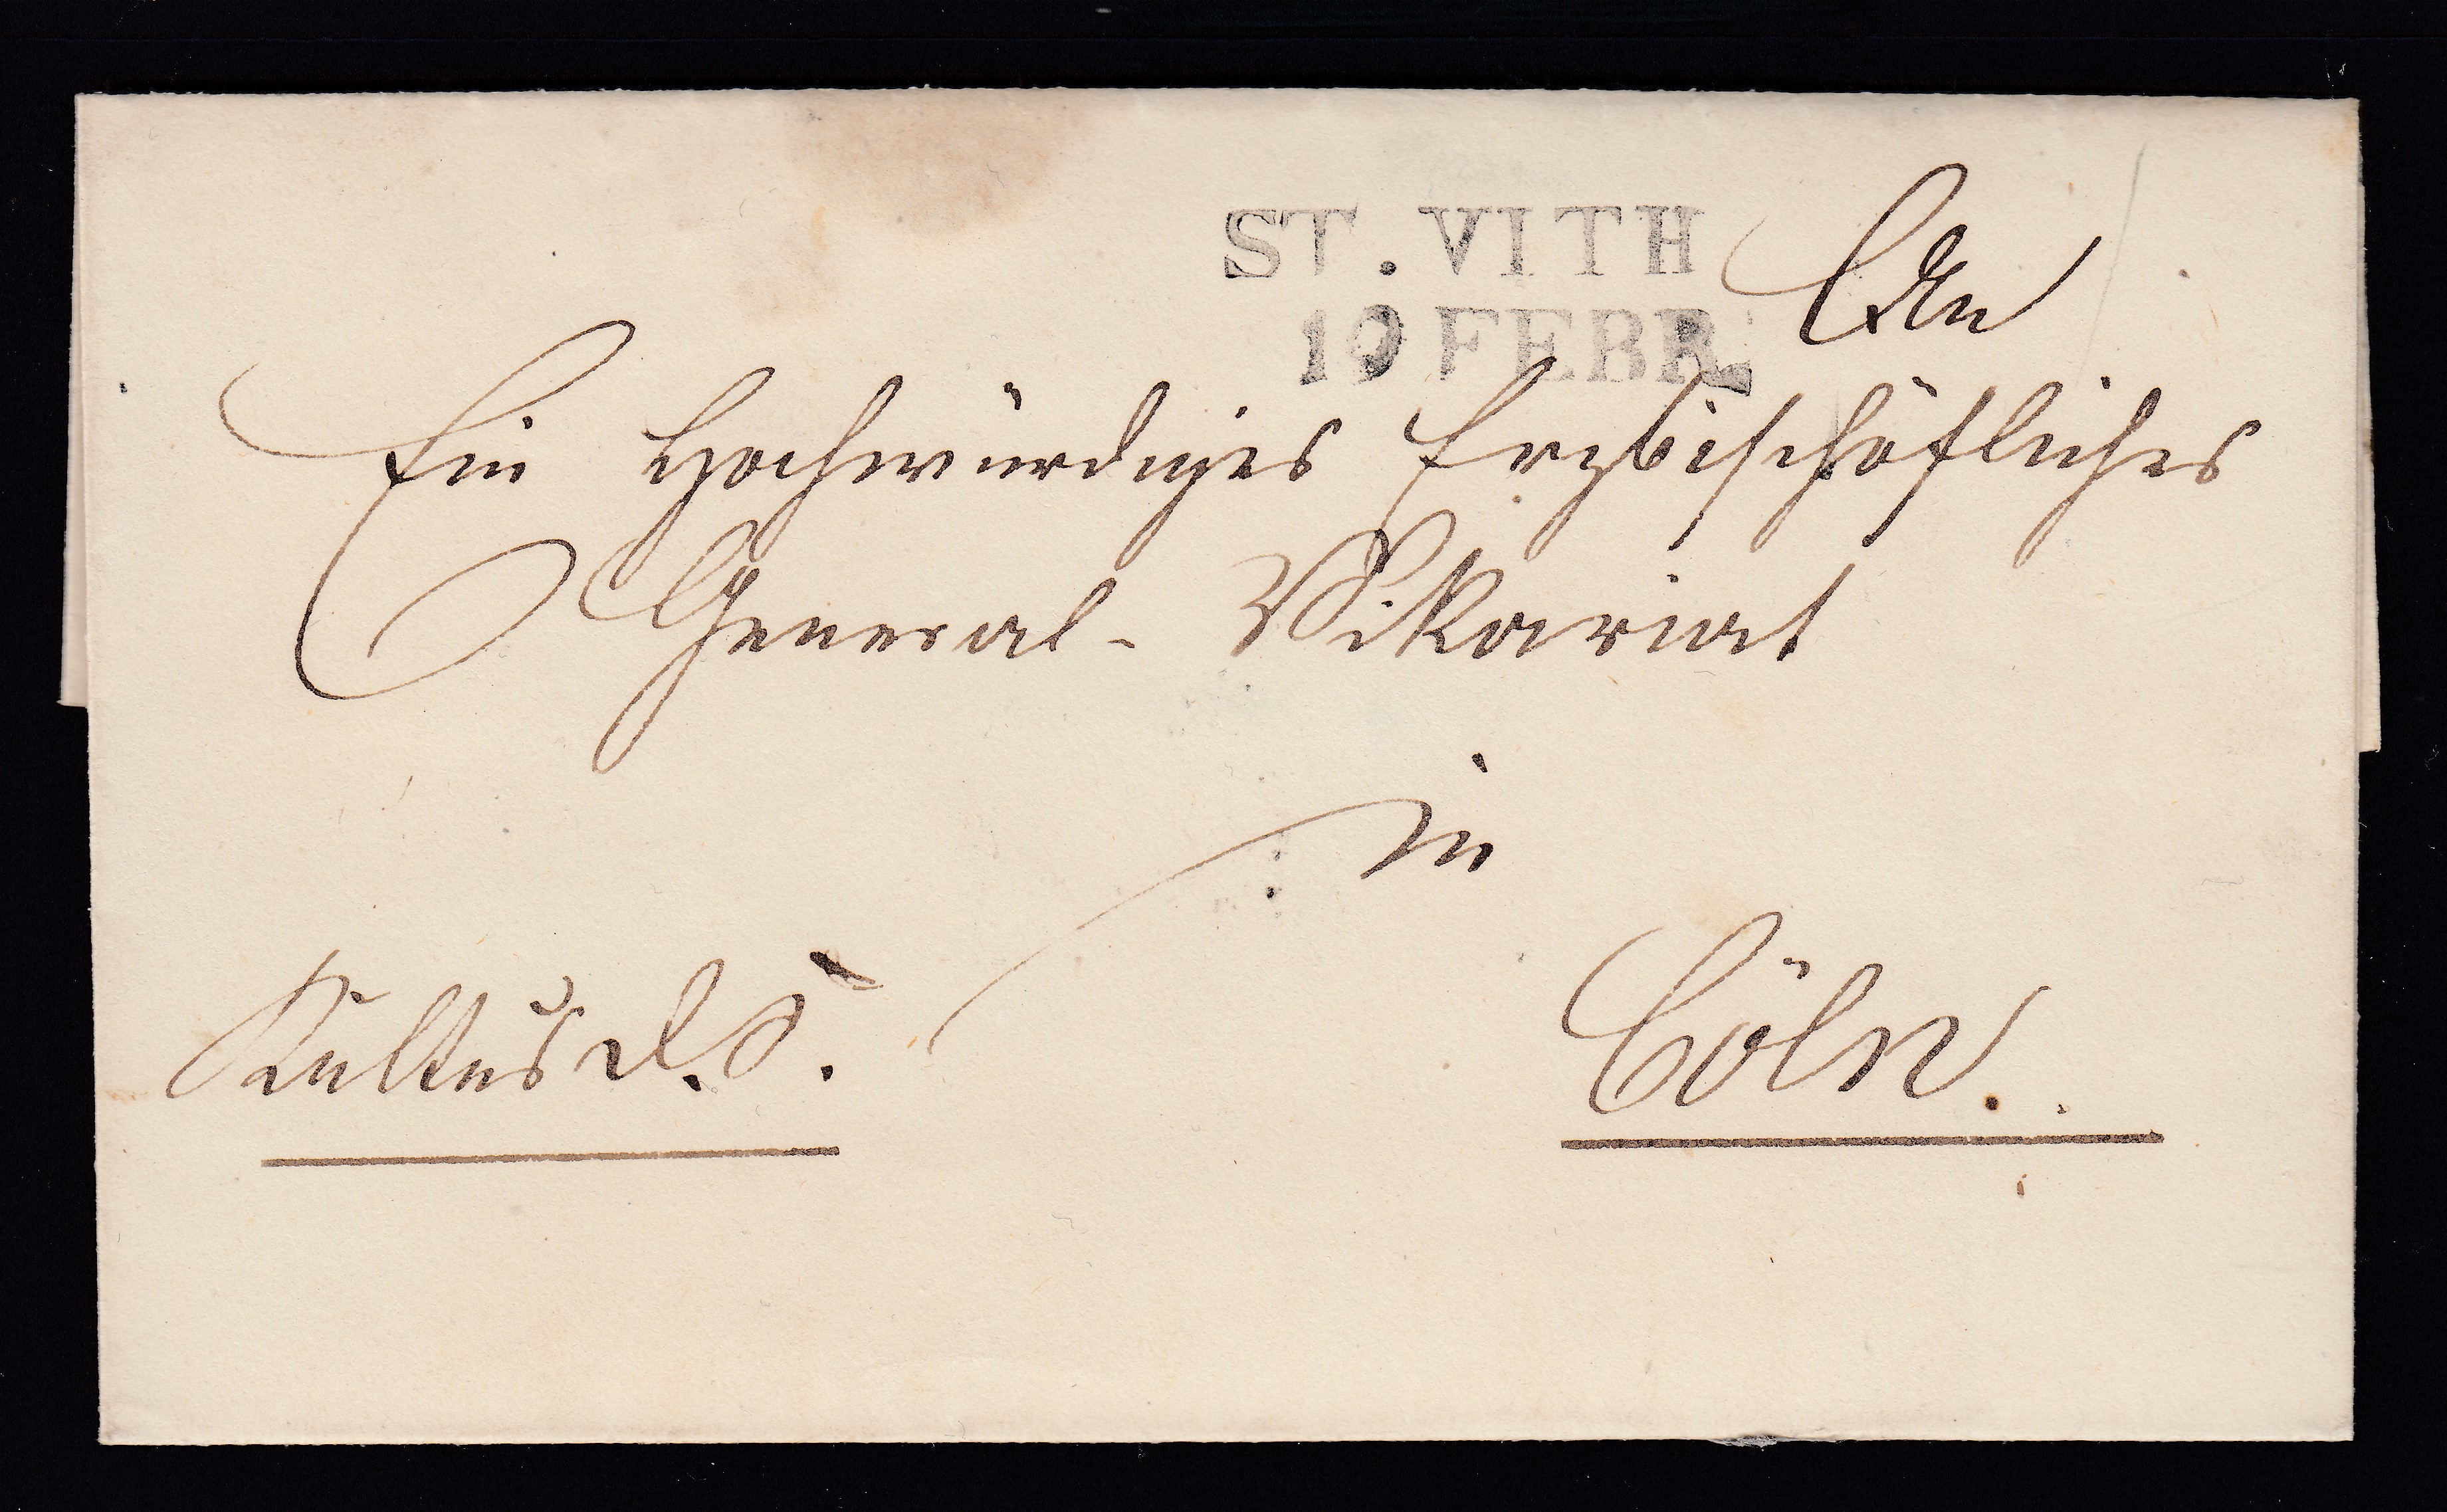 ST. VITH
10 FEBR.
An
Ein Hochwürdiges Erzbischöfliches
General-Vikariat
in
Kultus D. S.
Cöln.